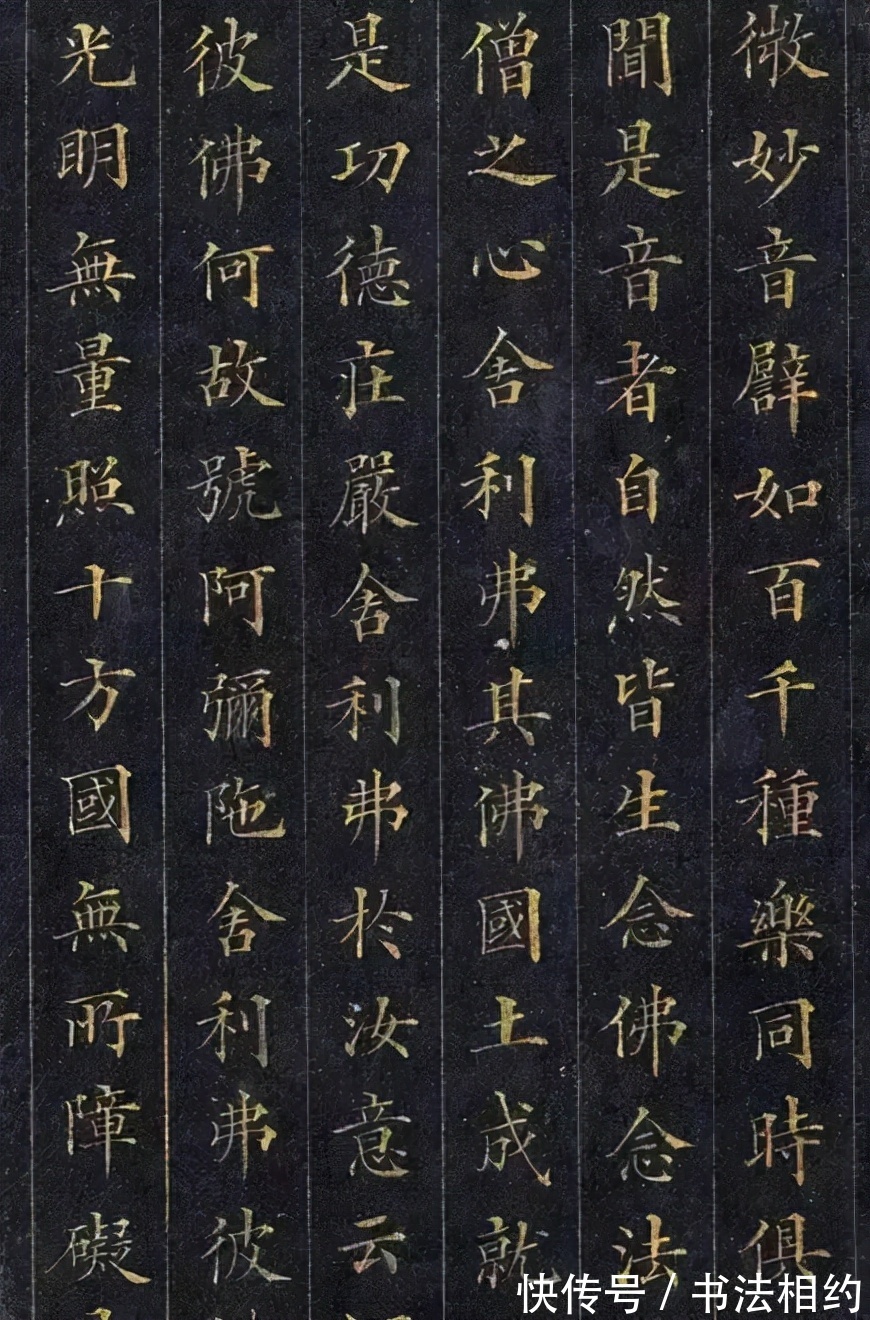 微妙音譬如百千種樂同時俱
聞是音者自然皆生念佛念法
僧之心舍利弗其佛國土成就
是功德莊嚴舍利弗於汝意云
彼佛何故號阿彌陁舍利弗彼
光明無量照十方國無所障礙
快传号 / 书法相约